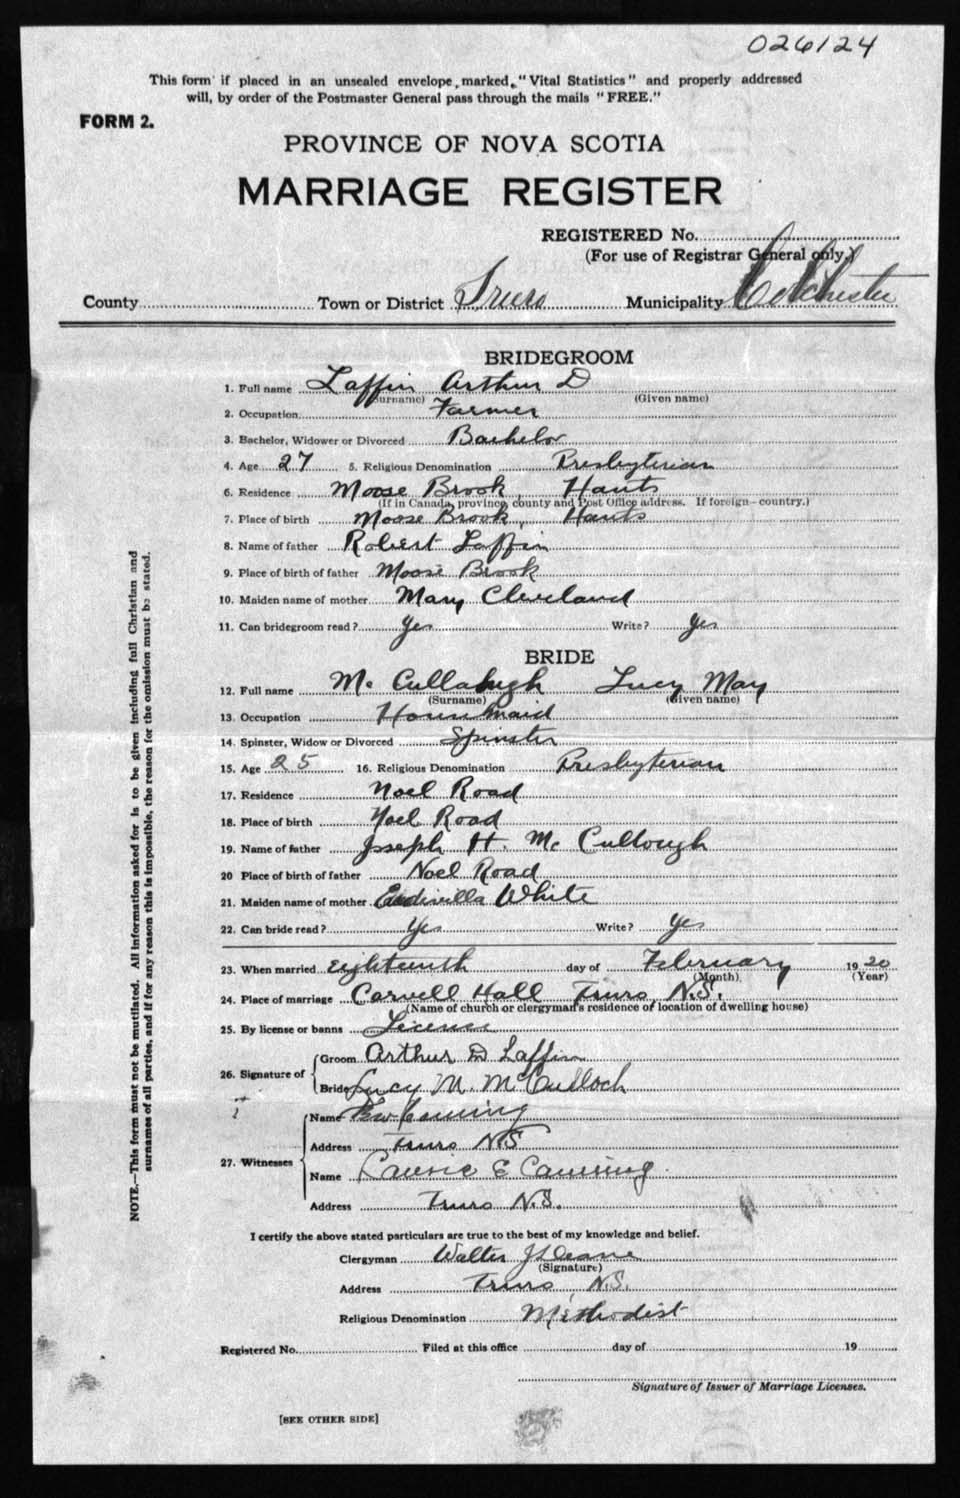 026124
This form if placed in an unsealed envelope, marked, "Vital Statistics" and properly addressed
will, by order of the Postmaster General pass through the mails "FREE."
FORM 2.
PROVINCE OF NOVA SCOTIA
MARRIAGE REGISTER
REGISTERED No.
(For use of Registrar General only.)
County Town or District Truro Municipality Colchester
BRIDEGROOM
1. Full name Laffin Arthur D
(Surname) (Given name)
2. Occupation Farmer
3. Bachelor, Widower or Divorced Bachelor
4. Age 27 5. Religious Denomination Presbyterian
6. Residence Moose Brook, Hants
(If in Canada, province, county and Post Office address. If foreign—country.)
7. Place of birth Moose Brook, Hants
8. Name of father Robert Laffin
9. Place of birth of father Moose Brook
10. Maiden name of mother Mary Cleveland
11. Can bridegroom read? Yes Write? Yes
BRIDE
12. Full name Mc Cullahugh Lucy May
(Surname) (Given name)
13. Occupation House Maid
14. Spinster, Widow or Divorced Spinster
15. Age 25 16. Religious Denomination Presbyterian
17. Residence Noel Road
18. Place of birth Noel Road
19. Name of father Joseph H. Mc Cullough
20 Place of birth of father Noel Road
21. Maiden name of mother White
22. Can bride read? Yes Write? Yes
23. When married Eighteenth day of February 1920
(Month) (Year)
24. Place of marriage Carvell Hall Truro, N.S.
(Name of church or clergyman's residence of location of dwelling house)
25. By license or banns License
26. Signature of Groom Arthur D Laffin
Bride Lucy M. McCulloch
27. Witnesses Name Canning
Address Truro N.S
Name E Canning
Address Truro N.S.
I certify the above stated particulars are true to the best of my knowledge and belief.
Clergyman Walter
(Signature)
Address Truro, N.S.
Religious Denomination Methodist
Registered No. Filed at this office day of 19
Signature of Issuer of Marriage Licenses.
[SEE OTHER SIDE]
NOTE.—This form must not be mutilated. All information asked for is to be given including full Christian and
surnames of all parties, and if for any reason this is impossible, the reason for the omission must be stated.